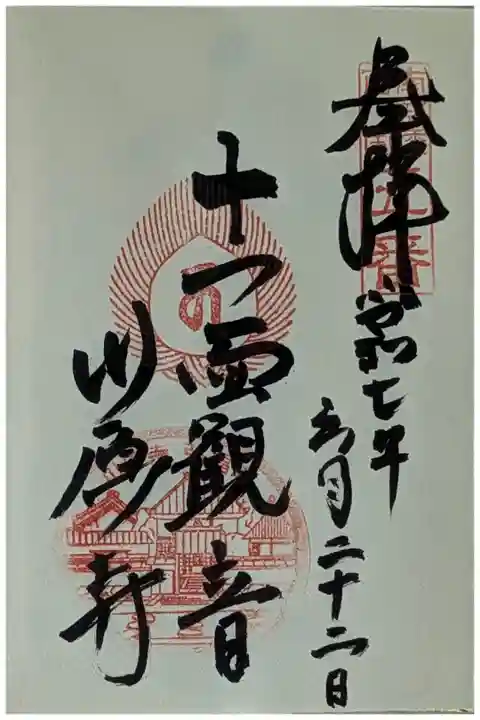 奉拝 令和七年
六月二十二日
十一面觀音
川原寺